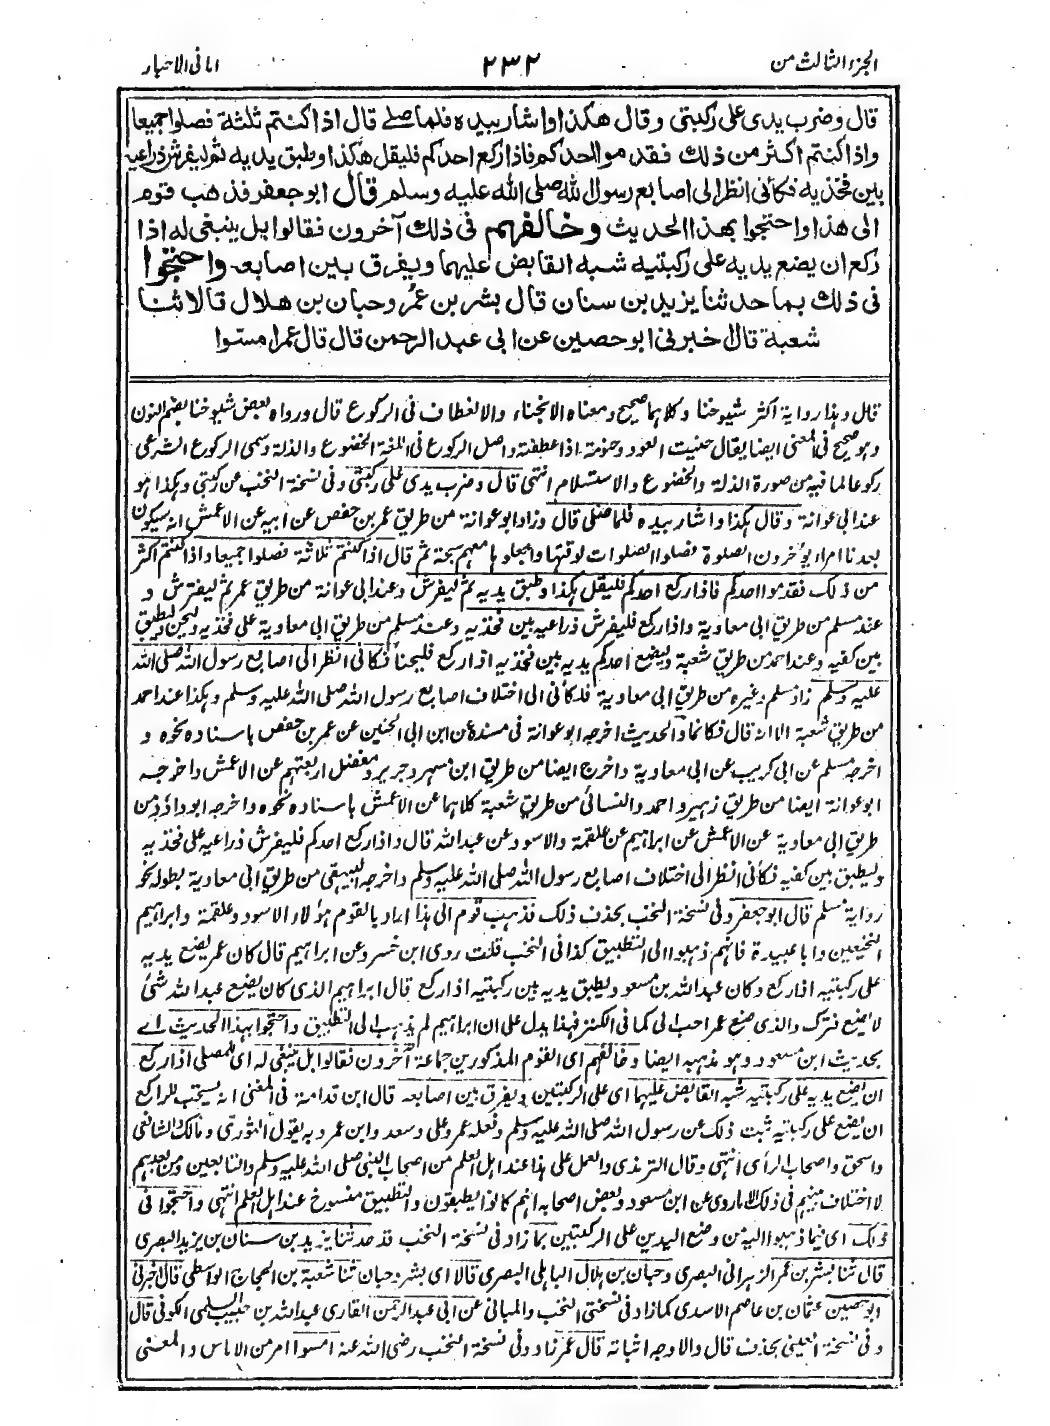 الجزء الثالث من
٢٣٢
امانى الاحبار
قال وضرب يدى على ركبتى وقال هكذا واشار بيده فلما صلى قال اذا كنتم ثلثة فصلوا جميعا
واذا كنتم اكثر من ذلك فقدموا احدكم فاذا ركع احدكم فليقل هكذا وطبق يديه ثم ليفرش ذراعيه
بين فخذيه فكأنى انظر الى اصابع رسول الله صلى الله عليه وسلم قال ابو جعفر فذهب قوم
الى هذا واحتجوا بهذا الحديث وخالفهم فى ذلك آخرون فقالوا بل ينبغى له اذا
ركع ان يضع يديه على ركبتيه شبه القابض عليهما ويفرق بين اصابعه واحتجوا
فى ذلك بما حدثنا يزيد بن سنان قال بشر بن عمر وحبان بن هلال قالا ثنا
شعبة قال اخبرنى ابو حصين عن ابى عبد الرحمن قال قال عمر امسوا
قال وهذا رواية اكثر شيوخنا وكلاهما صحيح ومعناه الانحناء والانعطاف فى الركوع قال ورواه بعض شيوخنا بضم النون
وهو صحيح فى المعنى ايضا يقال حنيت العود وحنوته اذا عطفته واصل الركوع فى اللغة الخضوع والذلة وسمى الركوع الشرعى
ركوعا لما فيه من صورة الذلة والخضوع والاستسلام انتهى قال وضرب يدى على ركبتى وفى نسخة النخب عن ركبتى وهكذا هو
عند ابى عوانة وقال هكذا واشار بيده فلما صلى قال وزاد ابو عوانة من طريق عمر بن حفص عن ابيه عن الاعمش انه سيكون
بعدنا امراء يؤخرون الصلوة فصلوا الصلوات لوقتها واجعلوها معهم سبحة ثم قال اذا كنتم ثلاثة فصلوا جميعا واذا كنتم اكثر
من ذلك فقدموا احدكم فاذا ركع احدكم فليقل هكذا وطبق يديه ثم ليفرش وعند ابى عوانة من طريق عمر ثم ليفترش و
عند مسلم من طريق ابى معاوية واذا ركع فليفرش ذراعيه بين فخذيه وعند مسلم من طريق ابى معاوية على فخذيه وليحن وليطبق
بين كفيه وعند احمد من طريق شعبة وليضع احدكم يديه بين فخذيه اذا ركع فليحنأ فكأنى انظر الى اصابع رسول الله صلى الله
عليه وسلم زاد مسلم وغيره من طريق ابى معاوية فلكأنى الى اختلاف اصابع رسول الله صلى الله عليه وسلم وهكذا عند احمد
من طريق شعبة الا انه قال فكانما والحديث اخرجه ابو عوانة فى مسنده عن ابن ابى الحنين عن عمر بن حفص باسناده نحوه و
اخرجه مسلم عن ابى كريب عن ابى معاوية واخرج ايضا من طريق ابن مسهر وجرير ومفضل اربعتهم عن الاعمش واخرجه
ابو عوانة ايضا من طريق زهير واحمد والنسائى من طريق شعبة كلاهما عن الاعمش باسناده نحوه واخرجه ابو داؤد من
طريق ابى معاوية عن الاعمش عن ابراهيم عن علقمة والاسود عن عبد الله قال واذا ركع احدكم فليفرش ذراعيه على فخذيه
وليطبق بين كفيه فكأنى انظر الى اختلاف اصابع رسول الله صلى الله عليه وسلم واخرجه البيهقى من طريق ابى معاوية بطوله نحو
رواية مسلم قال ابو جعفر وفى نسخة النخب بحذف ذلك فذهب قوم الى هذا اراد بالقوم هؤلاء الاسود وعلقمة وابراهيم
النخعيين وابا عبيدة فانهم ذهبوا الى التطبيق كذا فى النخب قلت روى ابن خسرو عن ابراهيم قال كان عمر يضع يديه
على ركبتيه اذا ركع وكان عبد الله بن مسعود يطبق يديه بين ركبتيه اذا ركع قال ابراهيم الذى كان يضع عبد الله شئ
لا يضع فترك والذى صنع عمر احب الى كما فى الكنز فهذا يدل على ان ابراهيم لم يذهب الى التطبيق واحتجوا بهذا الحديث اے
بحديث ابن مسعود وهو مذهبه ايضا وخالفهم اى القوم المذكورين جماعة آخرون فقالوا بل ينبغى له اى للمصلى اذا ركع
ان يضع يديه على ركبتيه شبه القابض عليهما اى على الركبتين ويفرق بين اصابعه قال ابن قدامة فى المغنى انه يستحب للراكع
ان يضع على ركبتيه ثبت ذلك عن رسول الله صلى الله عليه وسلم وفعله عمر وعلى وسعد وابن عمر وبه يقول الثورى ومالك والشافعى
واسحق واصحاب الرأى انتهى وقال الترمذى والعمل على هذا عند اهل العلم من اصحاب النبى صلى الله عليه وسلم والتابعين ومن بعدهم
لا اختلاف بينهم فى ذلك الا ما روى عن ابن مسعود وبعض اصحابه انهم كانوا يطبقون والتطبيق منسوخ عند اهل العلم انتهى واحتجوا فى
ذلك اى فيما ذهبوا اليه من وضع اليدين على الركبتين بما زاد فى نسخة النخب قد حدثنا يزيد بن سنان بن يزيد البصرى
قال ثنا بشر بن عمر الزهرانى البصرى وحبان بن هلال الباهلى البصرى قالا اى بشر وحبان ثنا شعبة بن الحجاج الواسطى قال اخبرنى
ابو حصين عثمان بن عاصم الاسدى كما زاد فى نسختى النخب والمبانى عن ابى عبد الرحمن القارى عبد الله بن حبيب السلمى الكوفى قال
وفى نسخة العينى بحذف قال والاوجه اثباته قال عمر زاد وفى نسخة النخب رضى الله عنه امسوا امر من الامساس والمعنى